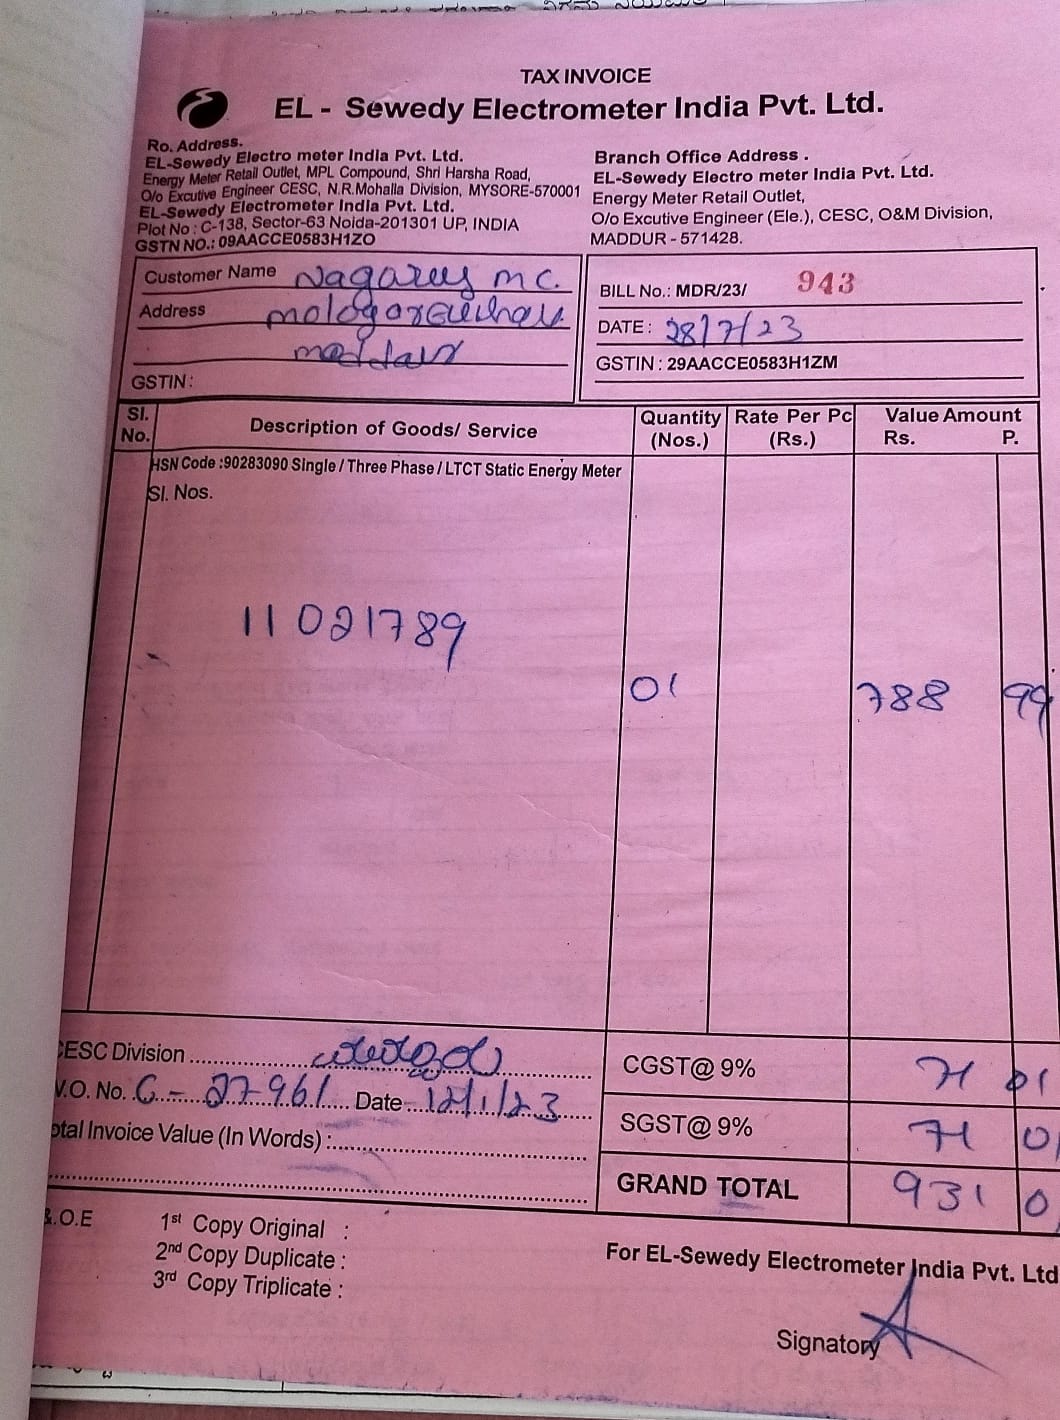 TAX INVOICE
EL - Sewedy Electrometer India Pvt. Ltd.
Ro. Address.
EL-Sewedy Electro meter India Pvt. Ltd.
Energy Meter Retail Outlet, MPL Compound, Shri Harsha Road,
O/o Excutive Engineer CESC, N.R.Mohalla Division, MYSORE-570001
EL-Sewedy Electrometer India Pvt. Ltd.
Plot No : C-138, Sector-63 Noida-201301 UP, INDIA
GSTN NO.: 09AACCE0583H1ZO
Branch Office Address .
EL-Sewedy Electro meter India Pvt. Ltd.
Energy Meter Retail Outlet,
O/o Excutive Engineer (Ele.), CESC, O&M Division,
MADDUR - 571428.
Customer Name m c.
Address
GSTIN :
BILL No.: MDR/23/ 943
DATE : 28/7/23
GSTIN : 29AACCE0583H1ZM
Sl. No. Description of Goods/ Service Quantity (Nos.) Rate Per Pc (Rs.) Value Amount Rs. P.
HSN Code :90283090 Single / Three Phase / LTCT Static Energy Meter
Sl. Nos.
11021789
01 788 99
CESC Division
W.O. No. C - 27961 Date 12/1/23
Total Invoice Value (In Words) :
CGST@ 9% 71 01
SGST@ 9% 71 0
GRAND TOTAL 931 0
&.O.E
1st Copy Original :
2nd Copy Duplicate :
3rd Copy Triplicate :
For EL-Sewedy Electrometer India Pvt. Ltd
Signatory